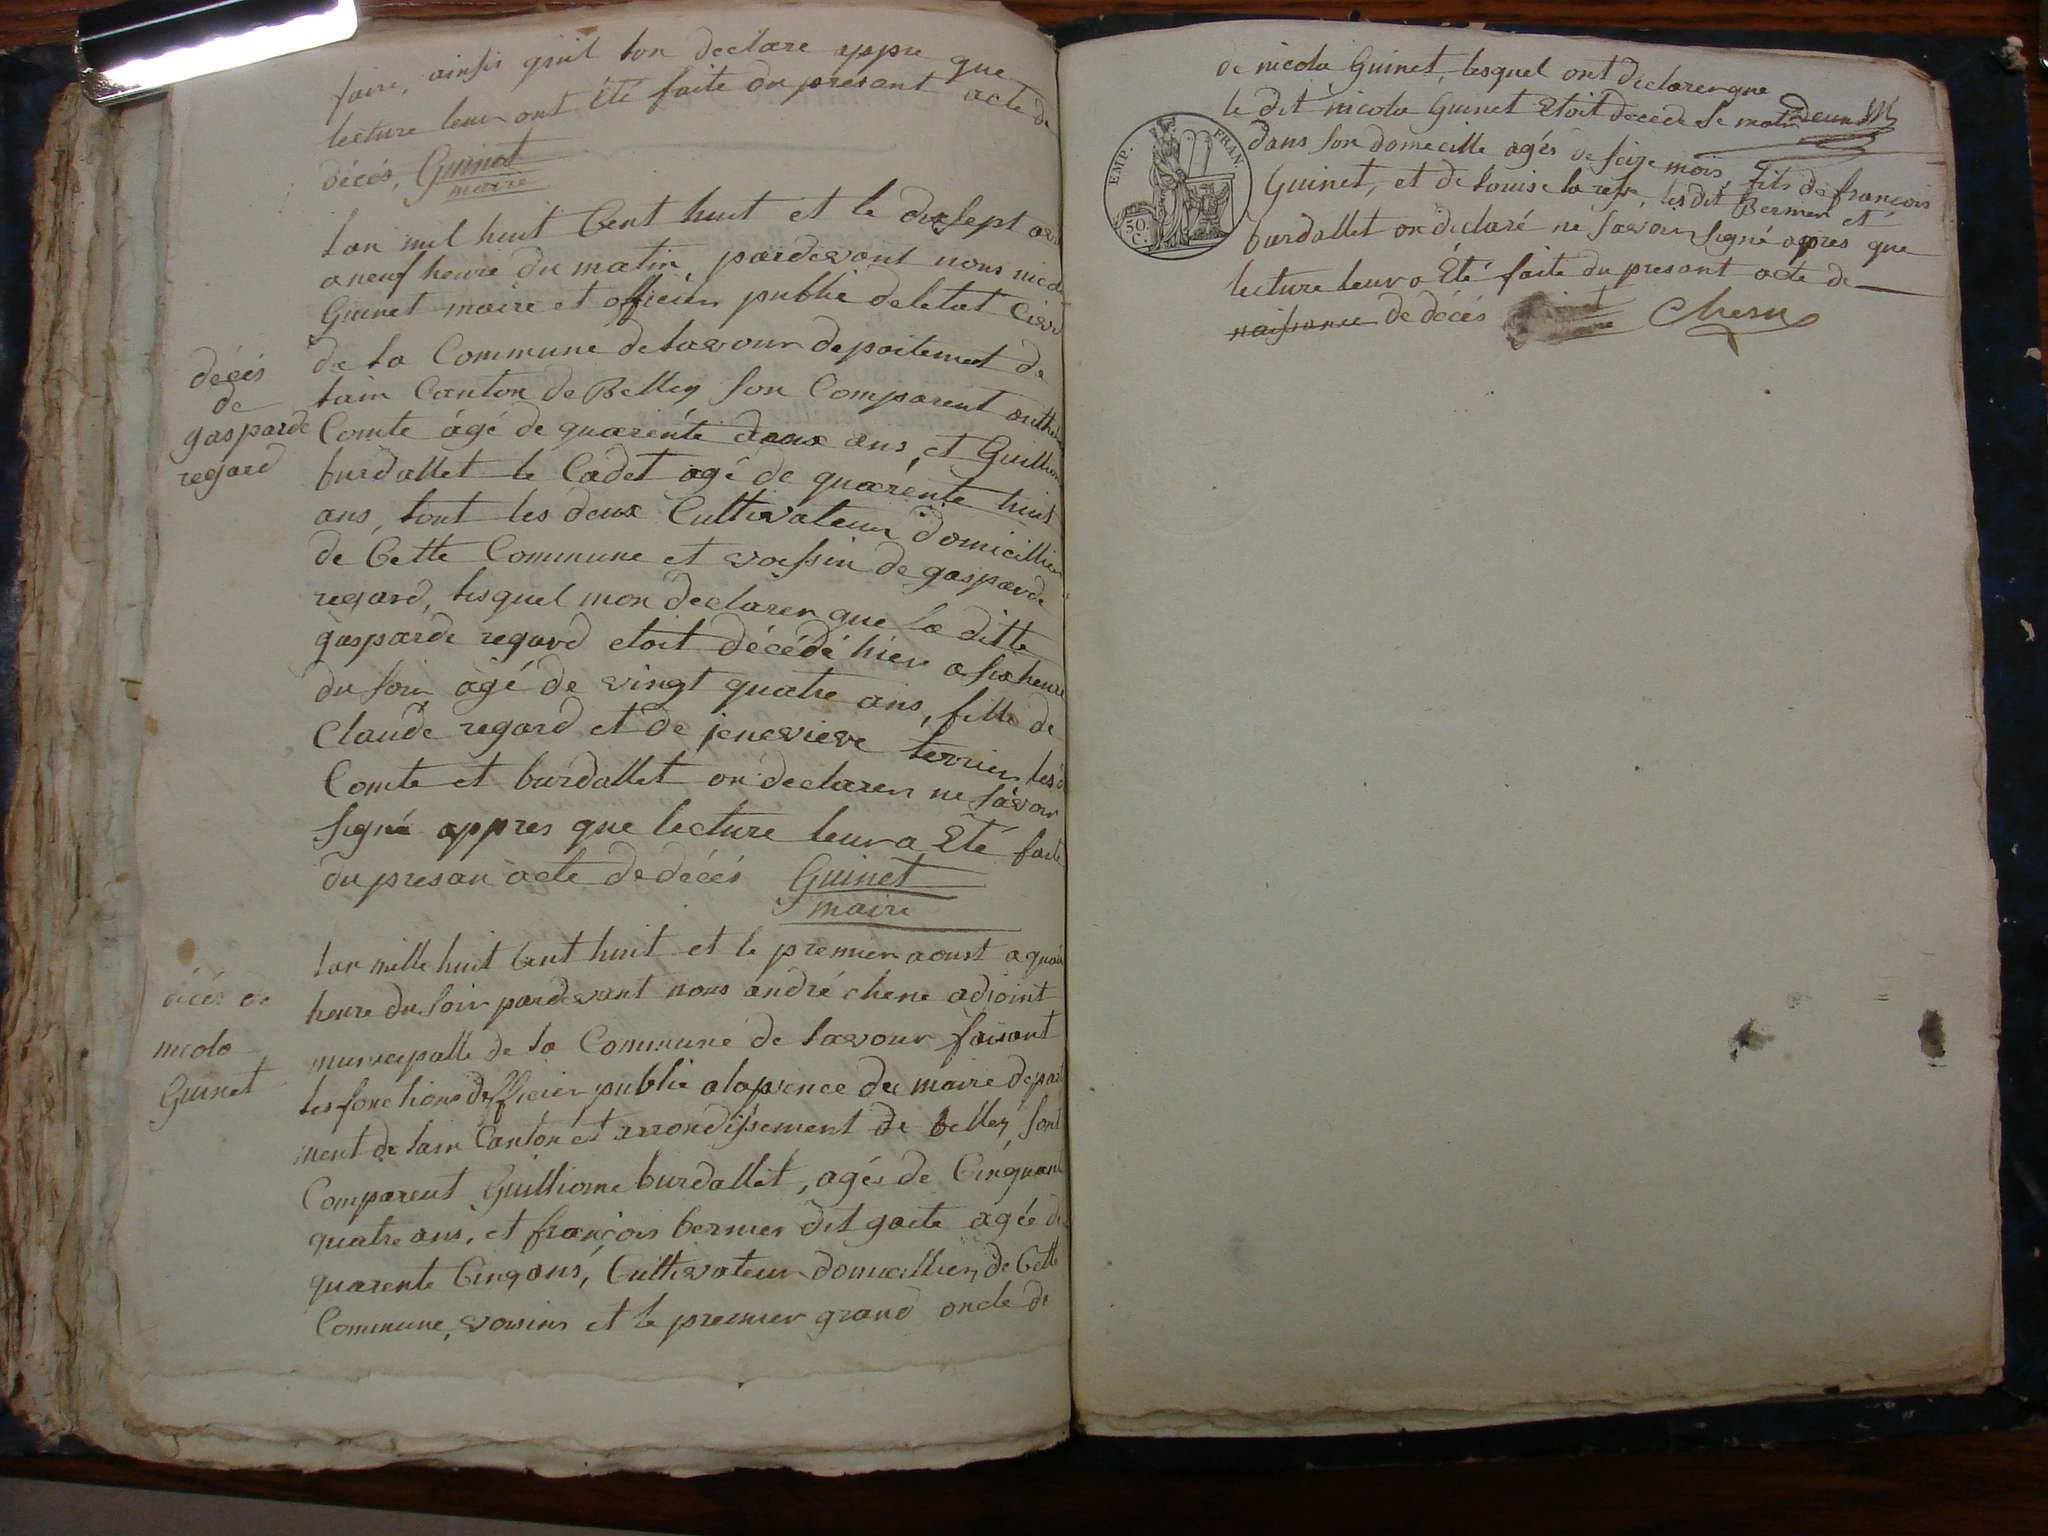 faire, ainsis quil lon declare appre que
lecture leur ont Eté faite du presant acte de
décés, Guinet
maire
lan mil huit Cent huit et le dixsept
a neuf heure du matin, pardevant nous
Guinet maire et officier public deletat
de la Commune de lavour depaitement de
lain Canton de Belley son Comparent
Comte âgé de quarénte deux ans, et
burdallet le Cadet agé de quarénte huit
ans, tout les deux Cultivateur domicillier
de Cette Commune et voissin de gasparde
regard, lesquel mon declarer que la ditte
gasparde regard etoit décédé hier a six heure
du soir agé de vingt quatre ans, fille de
Claude regard et de jenevieve terrier les
Comte et burdallet on declarer ne savoir
signé appres que lecture leur a Eté faite
du presan acte de décés Guinet
maire
décés
de
gasparde
regard
lan mille huit Cent huit et le premier aoust a
heure du soir pardevant nous andré chene adjoint
municipalle de la Commune de lavour faisant
les fonctions dofficier public alapsence du maire
ment de lain Canton et arrondissement de belley, sont
Comparent Guilliome burdallet, agés de Cinquant
quatre ans, et françois bermer dit gaite agée de
quarente Cinq ans, Cultivateur domicillier, de Cette
Commune, voisins et le premier grand oncle de
décés de
nicola
Guinet
de nicola Guinet, lesquel ont declarer que
le dit nicola Guinet Etoit decedé se matin
dans son domecille agés de seize mois, fils de françois
Guinet, et de louise la resse, les dit Bermer et
burdallet on declaré ne savoir signé appres que
lecture leur a Eté faite du presant acte de
naissance de décés Chesne
EMP. FRAN.
50.
C.